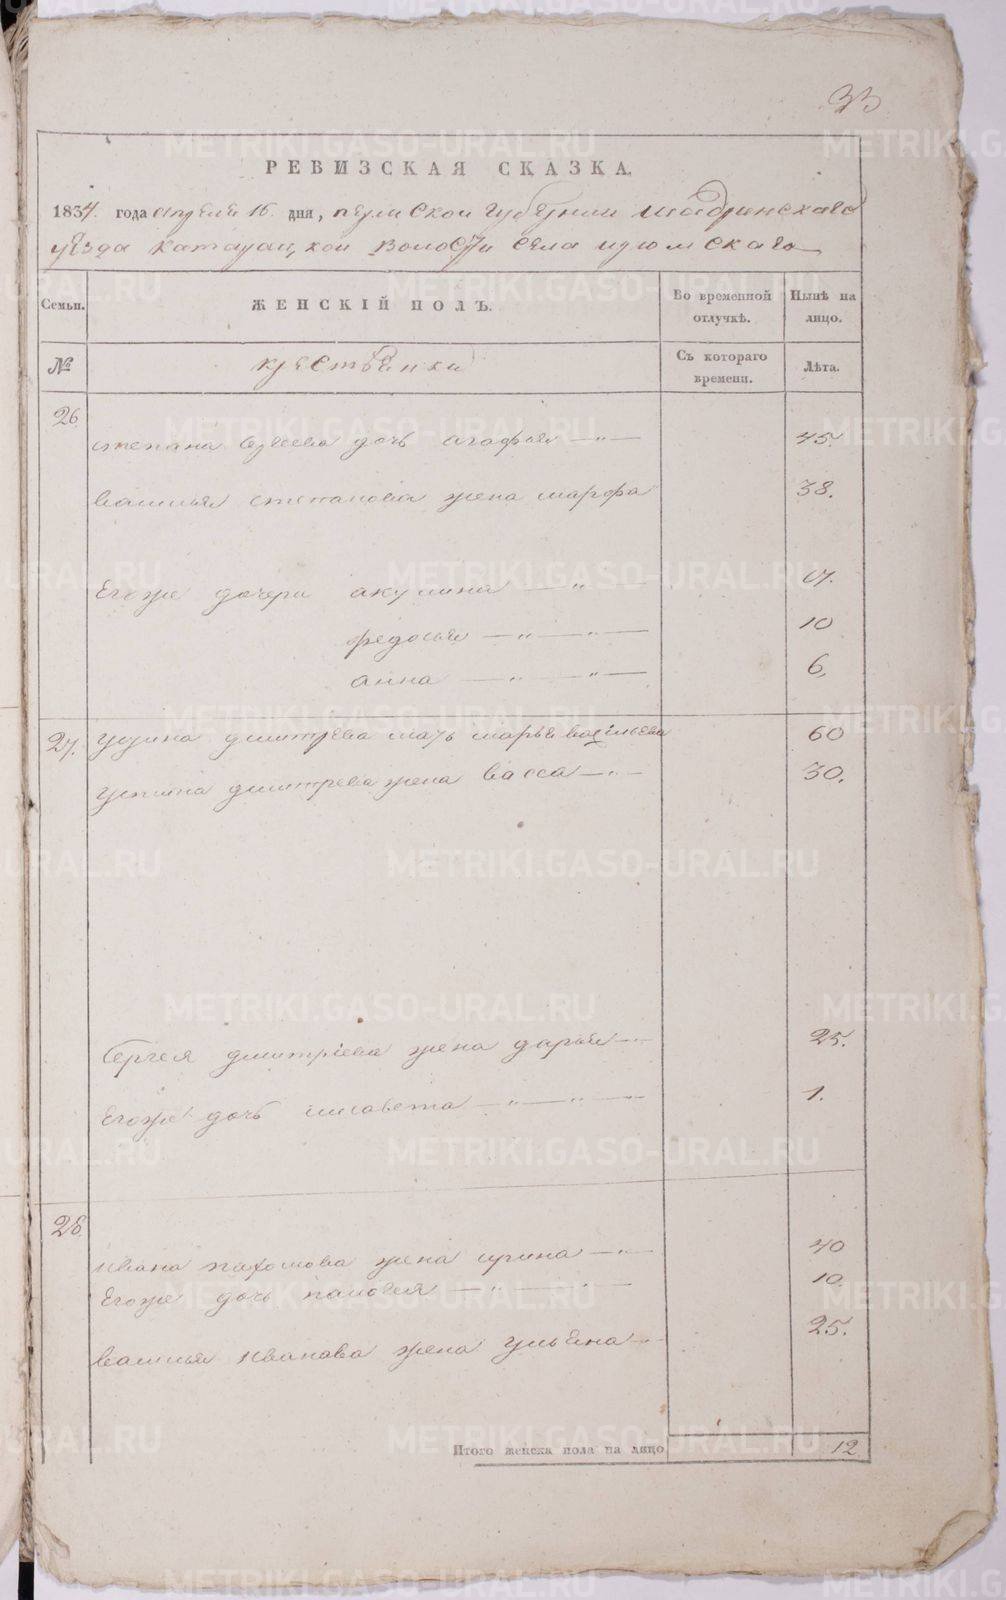 33
РЕВИЗСКАЯ СКАЗКА.
1834. года апреля 16. дня, пермской губернии шадринскаго
уезда катайской волости села
Семьи. ЖЕНСКІЙ ПОЛЪ. Во временной отлучкѣ. Нынѣ на лицо.
№ крестьянки Съ котораго времени. Лѣта.
26.
степана дочь агафья — " — 45.
василья степанова жена марфа 38.
Егоже дочери акулина — " — 17.
федосья — " — " — 10
анна — " — " — 6.
27. устина дмитрева мать марья васильева 60
устина дмитрева жена васса — " — 30.
Сергея дмитріева жена дарья — 25.
Егоже дочь елисавета — " — " — 1.
28.
ивана пахомова жена ирина — " — 40
Егоже дочь — " — 10.
василья иванава жена ульяна — 25.
Итого женска пола на лицо 12
METRIKI.GASO-URAL.RU